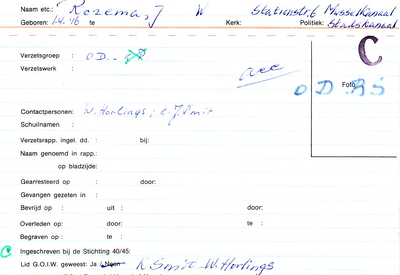 Naam etc.: Rozema, J W Stationstr. 6 Musselkanaal
Geboren: 1.4.16 te Kerk: Politiek: Stadskanaal
C
Verzetsgroep : O D. -
Verzetswerk
Foto
O D. B.S
Contactpersonen: W. Horlings; K. J. Smit
Schuilnaam :
Verzetsrapp. ingel. dd. : bij:
Naam genoemd in rapp.:
op bladzijde:
Gearresteerd op : door:
Gevangen gezeten in :
Bevrijd op : uit : door:
Overleden op: door: te :
Begraven op : te :
C Ingeschreven bij de Stichting 40/45:
Lid G.O.I.W. geweest: Ja / Neen K Smit - W. Horlings